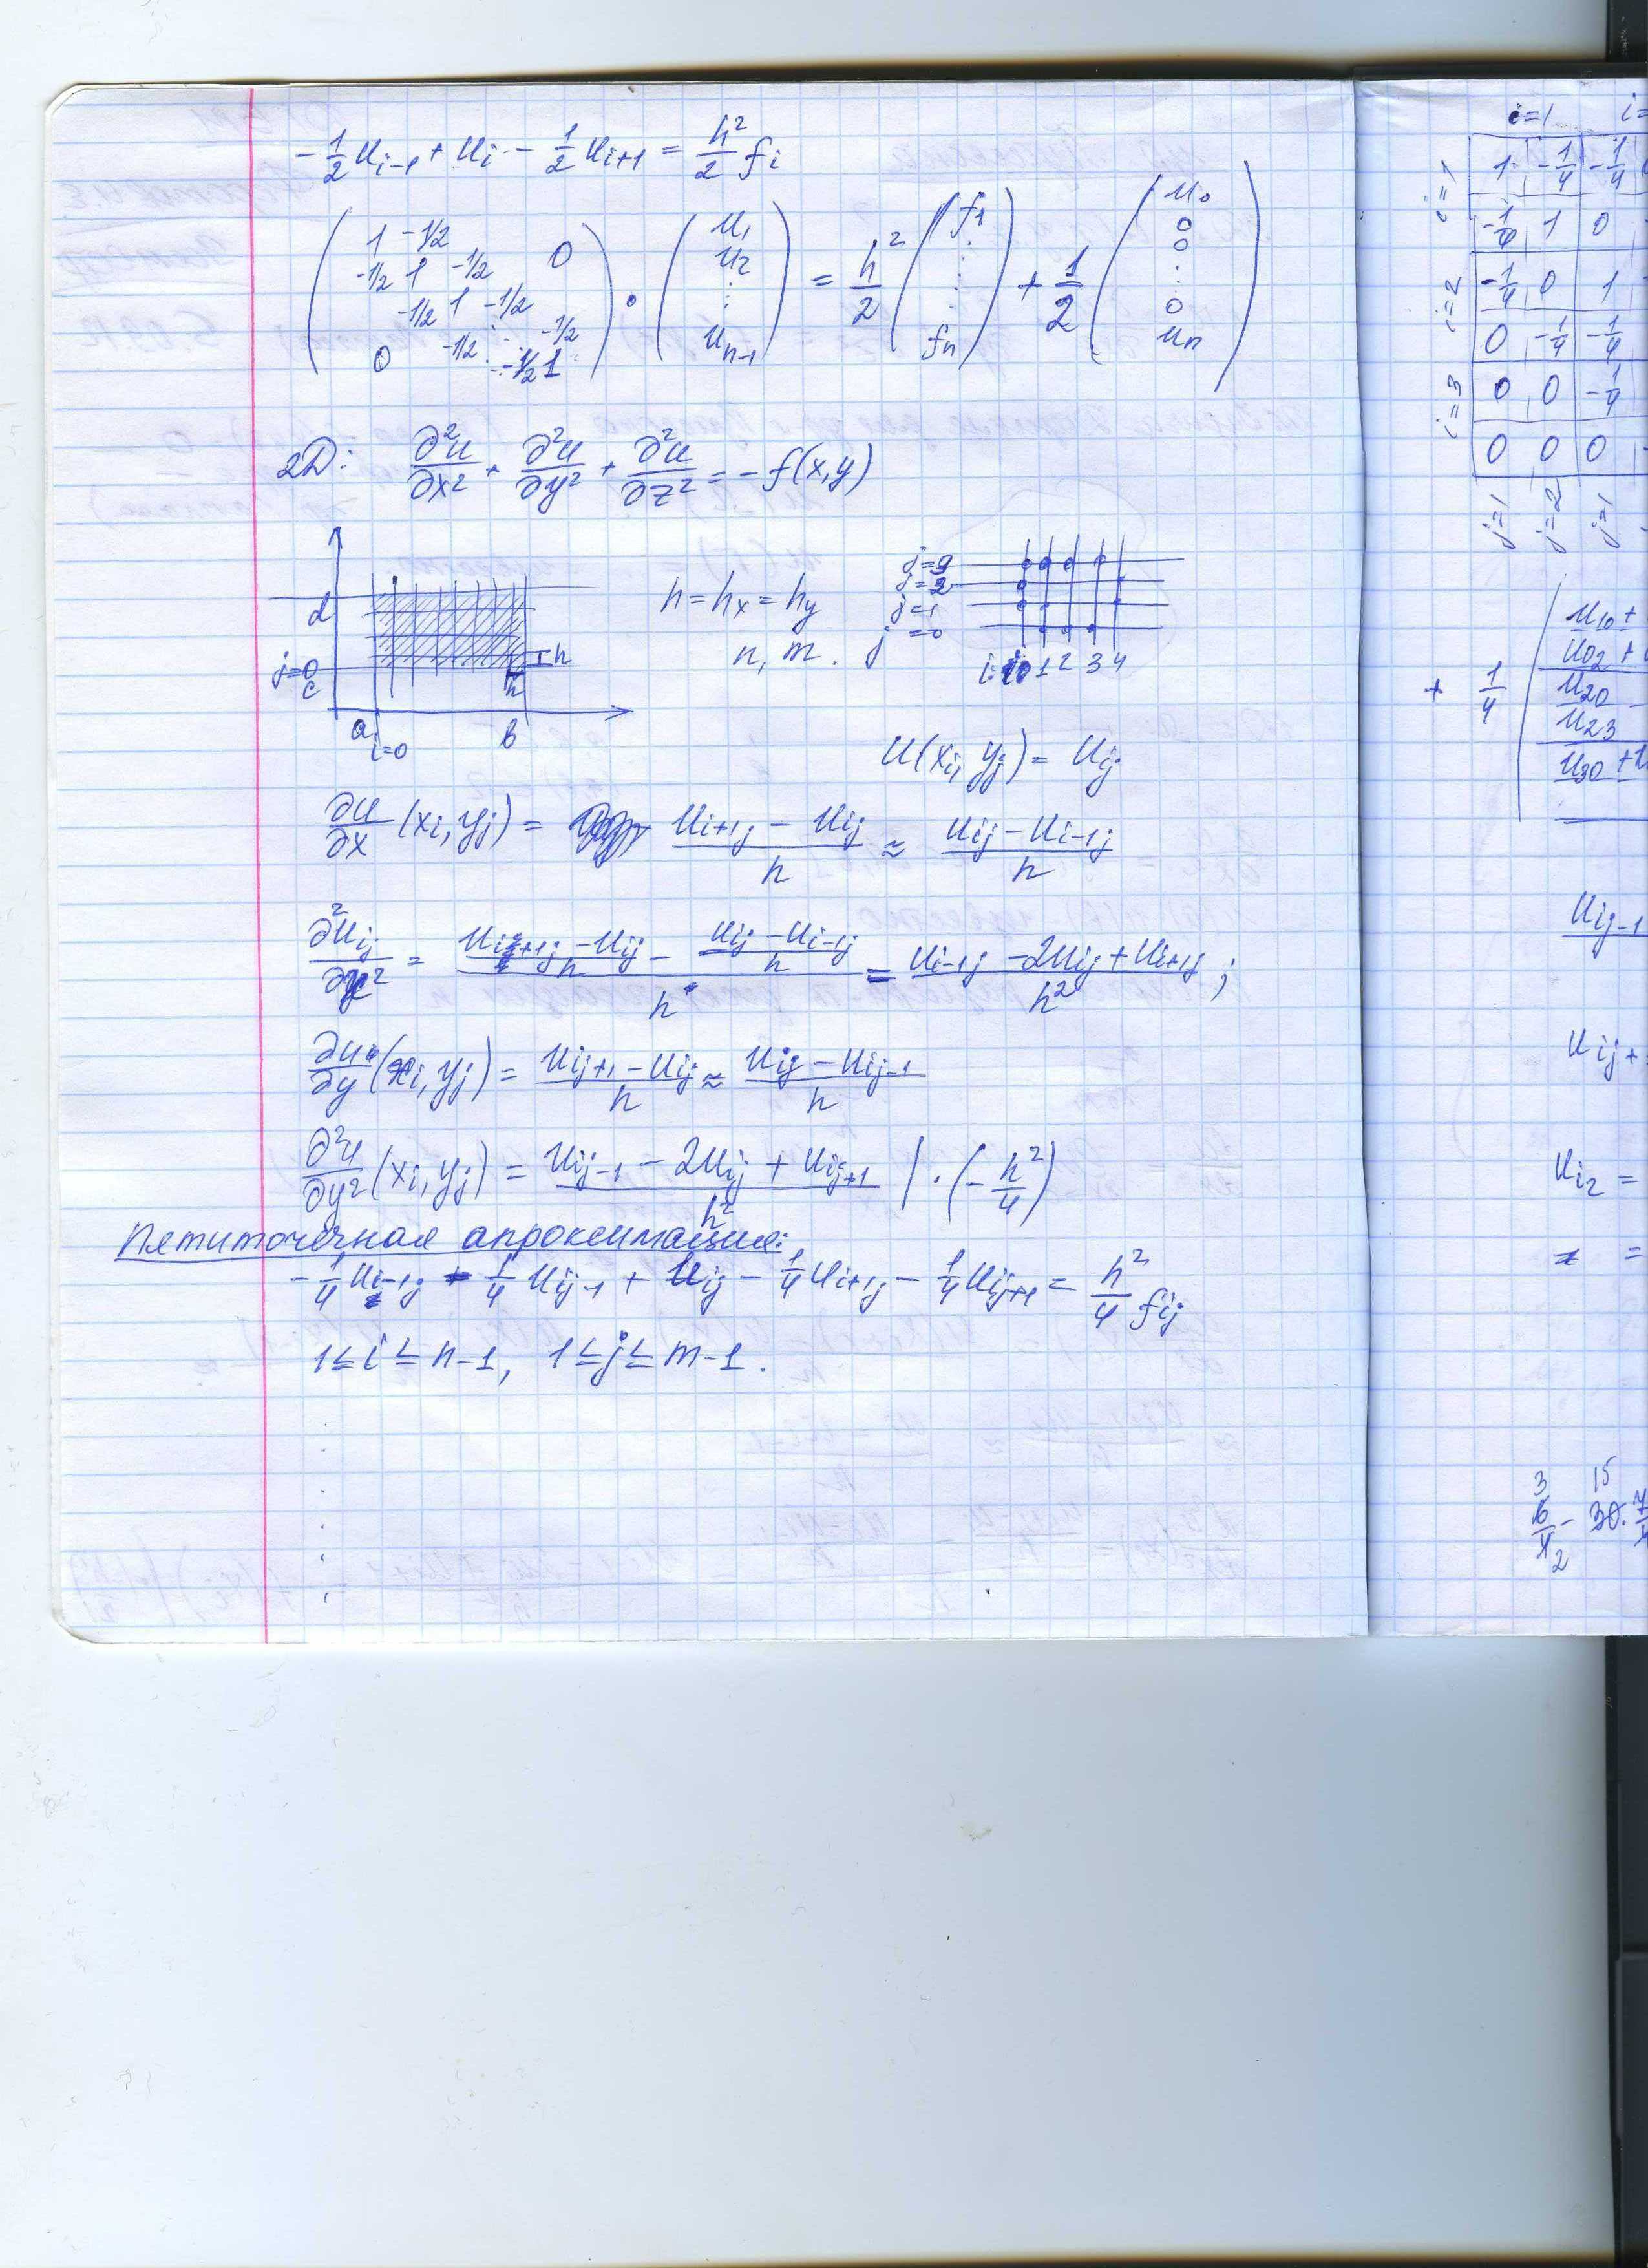 -1/2 u_{i-1} + u_i - 1/2 u_{i+1} = h²/2 f_i
1 -1/2
-1/2 1 -1/2 0
-1/2 1 -1/2
0 -1/2 ... -1/2
-1/2 1
·
u_1
u_2
⋮
u_{n-1}
= h²/2
f_1
⋮
f_n
+ 1/2
u_0
0
0
⋮
0
u_n
2D: ∂²u/∂x² + ∂²u/∂y² + ∂²u/∂z² = -f(x,y)
d
j=0
c
a
i=0
b
h
h
h = h_x = h_y
n, m.
j=2
j=1
j=0
i: 0 1 2 3 4
u(x_i, y_j) = u_{ij}
∂u/∂x (x_i, y_j) = (u_{i+1j} - u_{ij})/h ≈ (u_{ij} - u_{i-1j})/h
∂²u_{ij}/∂x² = ((u_{i+1j} - u_{ij})/h - (u_{ij} - u_{i-1j})/h)/h = (u_{i-1j} - 2u_{ij} + u_{i+1j})/h² ;
∂u/∂y (x_i, y_j) = (u_{ij+1} - u_{ij})/h ≈ (u_{ij} - u_{ij-1})/h
∂²u/∂y² (x_i, y_j) = (u_{ij-1} - 2u_{ij} + u_{ij+1})/h² | · (-h²/4)
Пятиточечная апроксимация:
-1/4 u_{i-1j} - 1/4 u_{ij-1} + u_{ij} - 1/4 u_{i+1j} - 1/4 u_{ij+1} = h²/4 f_{ij}
1 ≤ i ≤ n-1, 1 ≤ j ≤ m-1.
i=1 i=
i=1
1 -1/4 -1/4
-1/4 1 0
i=2
-1/4 0 1
0 -1/4 -1/4
i=3
0 0 -1/4
0 0 0
j=1 j=2 j=1
+ 1/4
u_{10} +
u_{02} +
u_{20}
u_{23}
u_{30} +
u_{ij-1}
u_{ij+
u_{i2} =
=
3 15